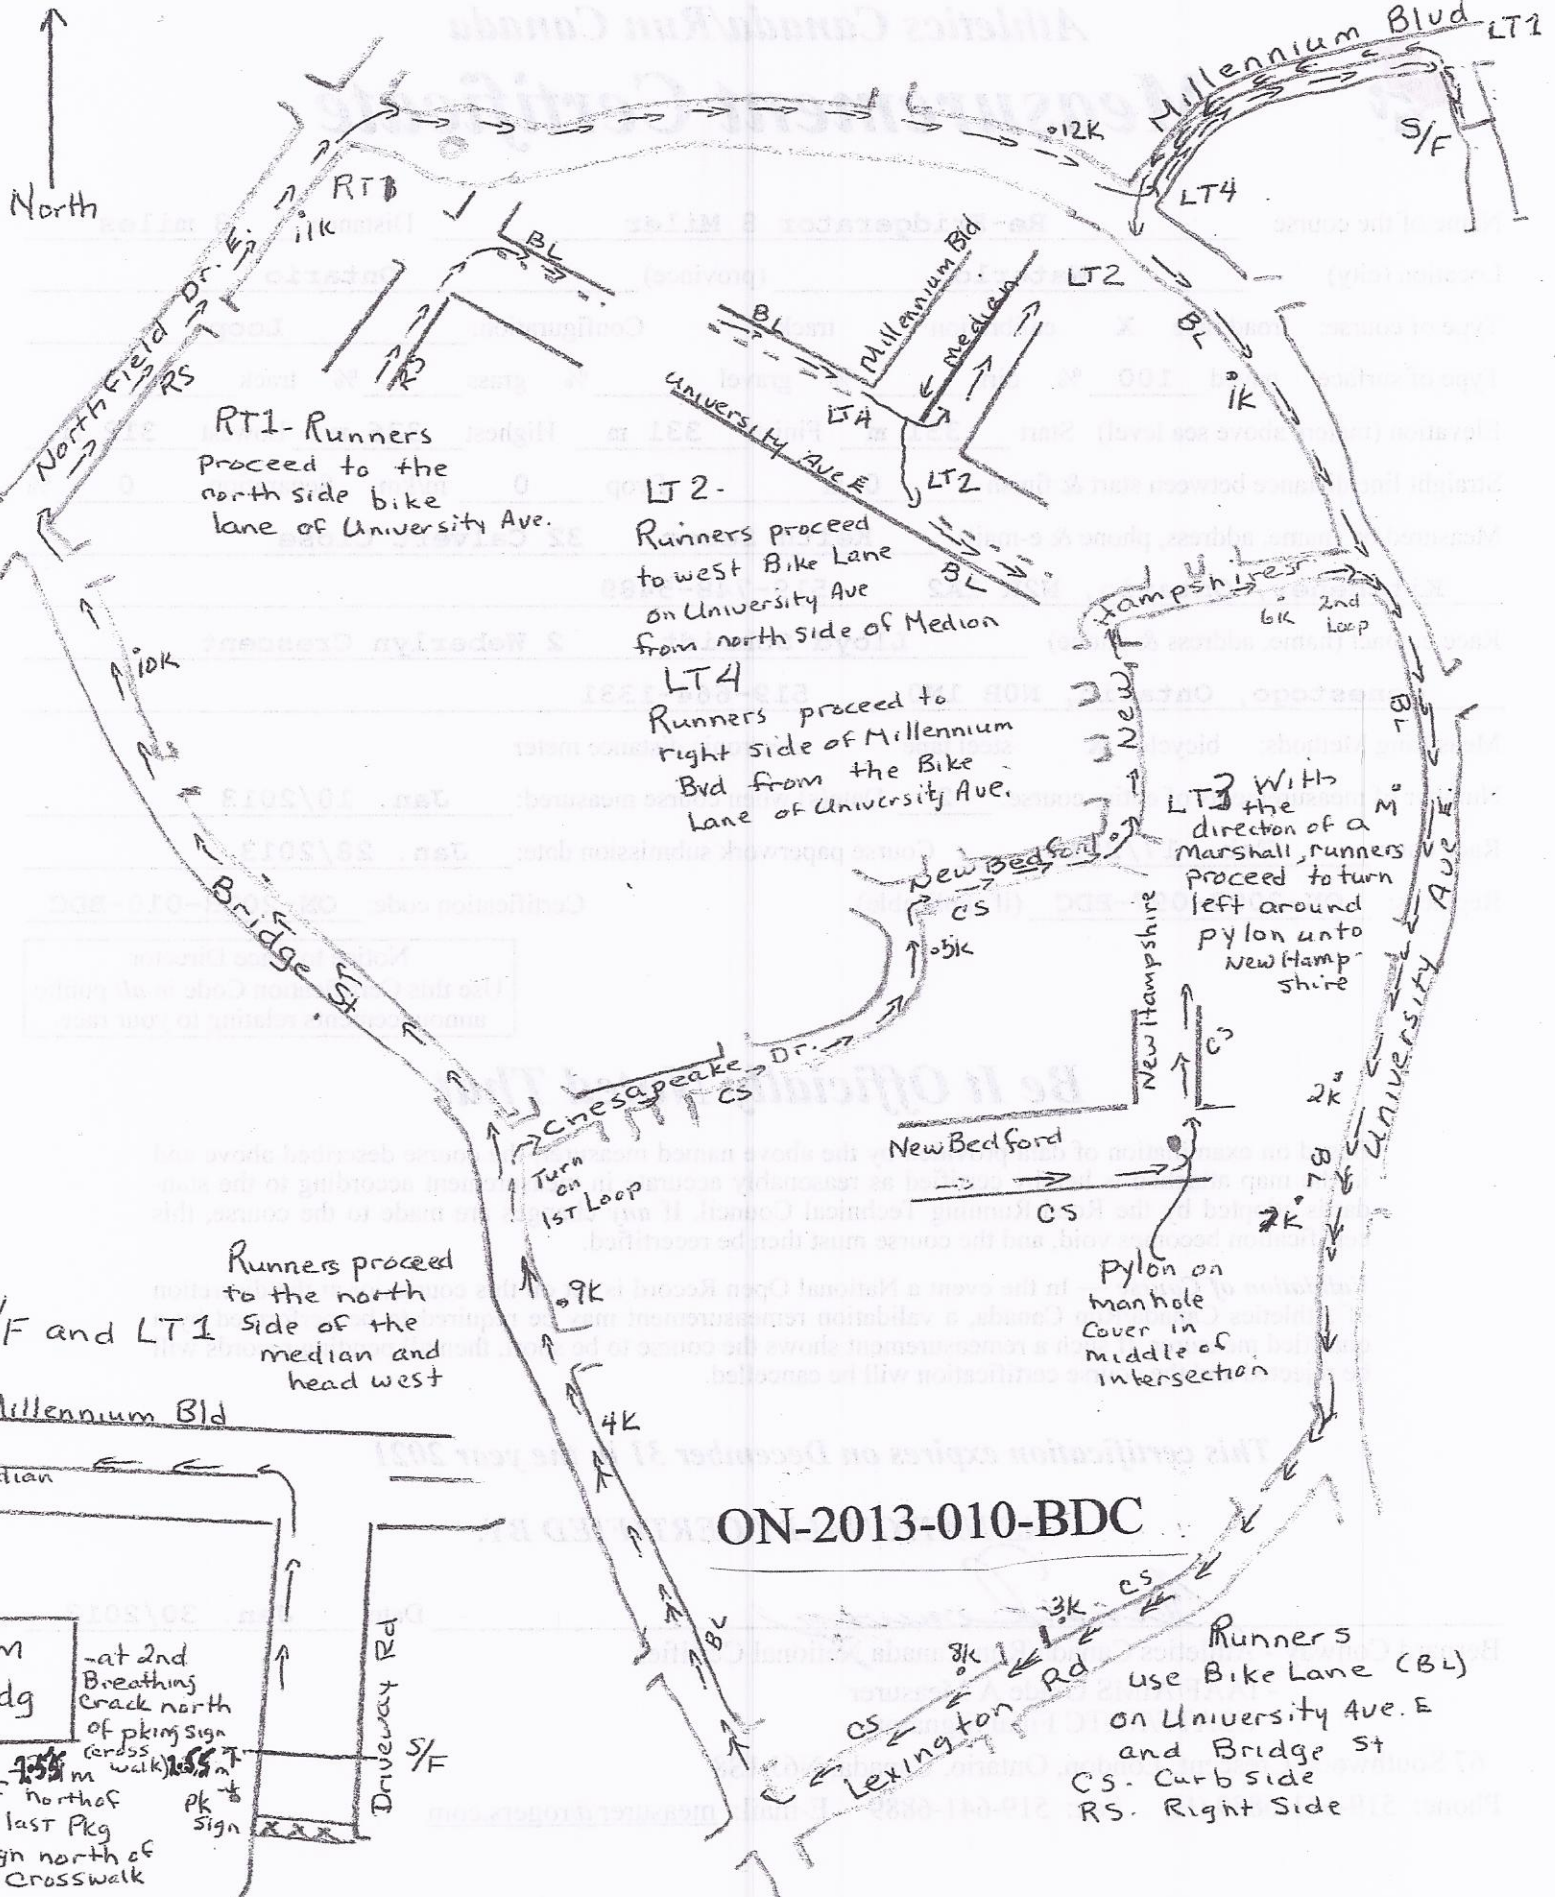 Millennium Blvd
LT1
S/F
North
12K
LT4
RT1
11K
BL
North Field Dr. E.
RS
BL
Millennium Bld
Median
LT2
BL
1K
LT4
LT2
University Ave E
BL
RS
RT1. Runners
proceed to the
north side bike
lane of University Ave.
LT 2-
Runners proceed
to west Bike Lane
on University Ave
from north side of Medion
LT4
Runners proceed to
right side of Millennium
Bvd from the Bike
Lane of University Ave.
New Hampshire
6K 2nd
Loop
BL
10K
LT3 With
the
direction of a
Marshall, runners
proceed to turn
left around
pylon unto
New Hamp-
shire
M
University Ave E.
New Bedford
CS
.5K
Bridge St
Chesapeake Dr.
CS
Turn
on
1st Loop
New Hampshire
CS
New Bedford
CS
2K
BL
7K
Pylon on
manhole
cover in
middle of
intersection
Runners proceed
to the north
side of the
median and
head west
/F and LT1
9K
4K
Millennium Bld
dian
ON-2013-010-BDC
BL
CS
3K
8K
CS
Lexington Rd
Runners
use Bike Lane (BL)
on University Ave. E
and Bridge St
CS. Curb side
RS. Right Side
m
dg
-at 2nd
Breathing
Crack north
of pking sign
(cross
walk)
m
north of
last Pkg
gn north of
Crosswalk
Pk
sign
Driveway Rd
S/F